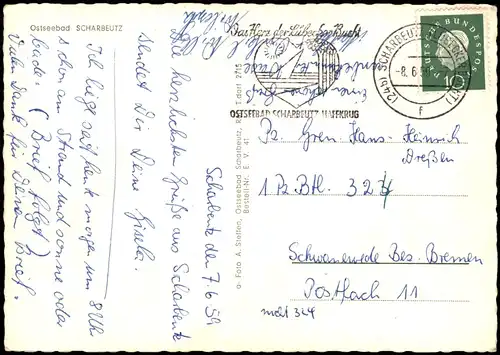 Ostseebad SCHARBEUTZ
Scharbeutz den 7.6.59
Die herzlichsten Grüße aus Scharbeutz
sendet Dir Deine Gisela.
Ich liege seit heute morgen um 8 Uhr
schon am Strand und sonne oder
bade. (Brief folgt)
Vielen Dank für Deinen Brief.
a- Foto A. Steffen, Ostseebad Scharbeutz, Ruf T'dorf 3745
Bestell-Nr. E. V. 41
Das Herz der Lübecker Bucht
OSTSEEBAD SCHARBEUTZ-HAFFKRUG
(24b) SCHARBEUTZ
-8.6.59
f
DEUTSCHE BUNDESPOST
10
Pz. Gren. Hans-Heinrich
Dreßen
1 Pz. Btl. 324
Schwanewede Bez. Bremen
Postfach 11
nicht 324